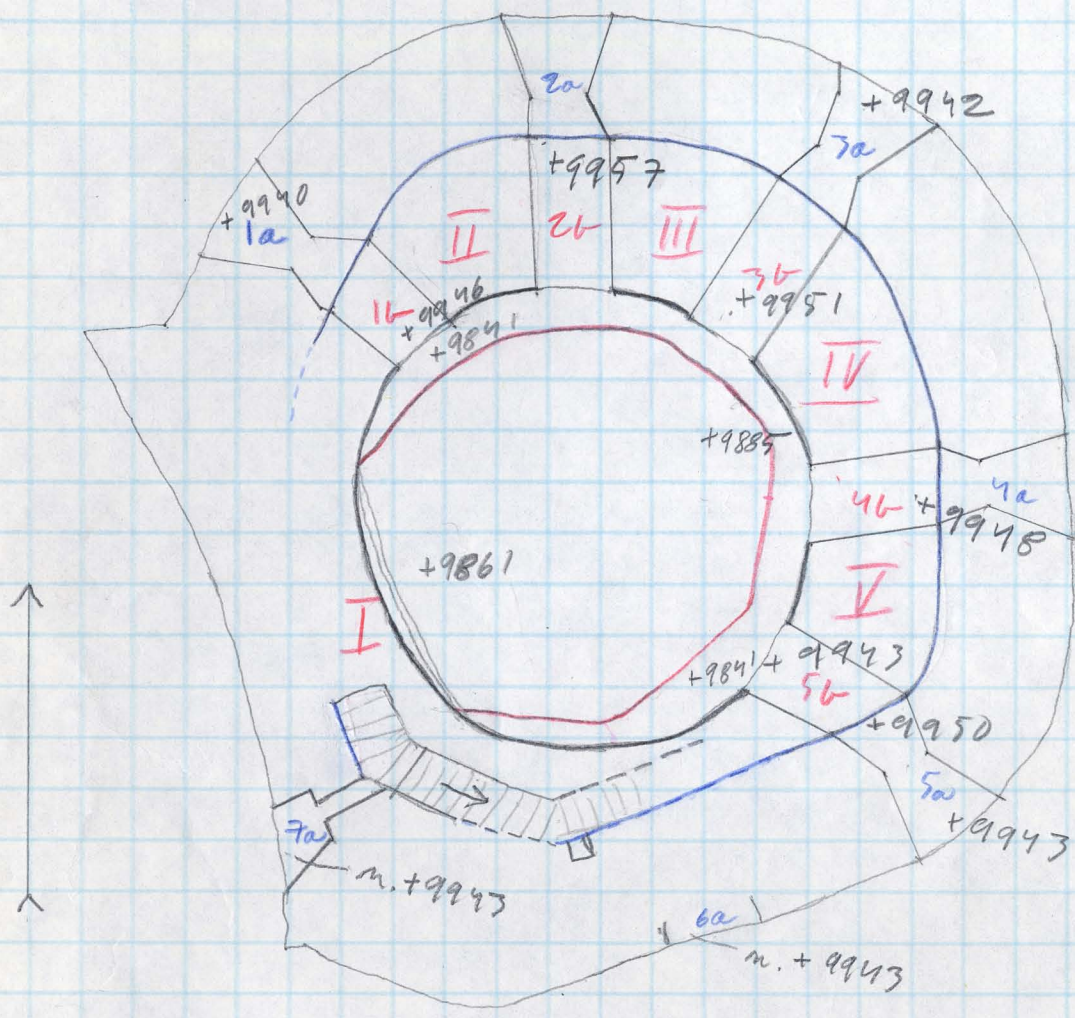 2a
+9942
3a
+9957
+9940
1a
II
2b
III
3b
+9951
1b
+9946
+9841
IV
+9835
4b
4a
+9948
+9861
V
I
+9841
+9943
5b
+9950
5a
+9943
7a
n. +9943
6a
n. +9943